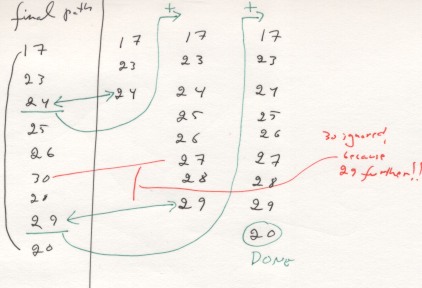 final path
17
23
24
25
26
30
28
29
20
17
23
24
+
17
23
24
25
26
27
28
29
+
17
23
24
25
26
27
28
29
20
DONE
30 ignored,
because
29 further!!